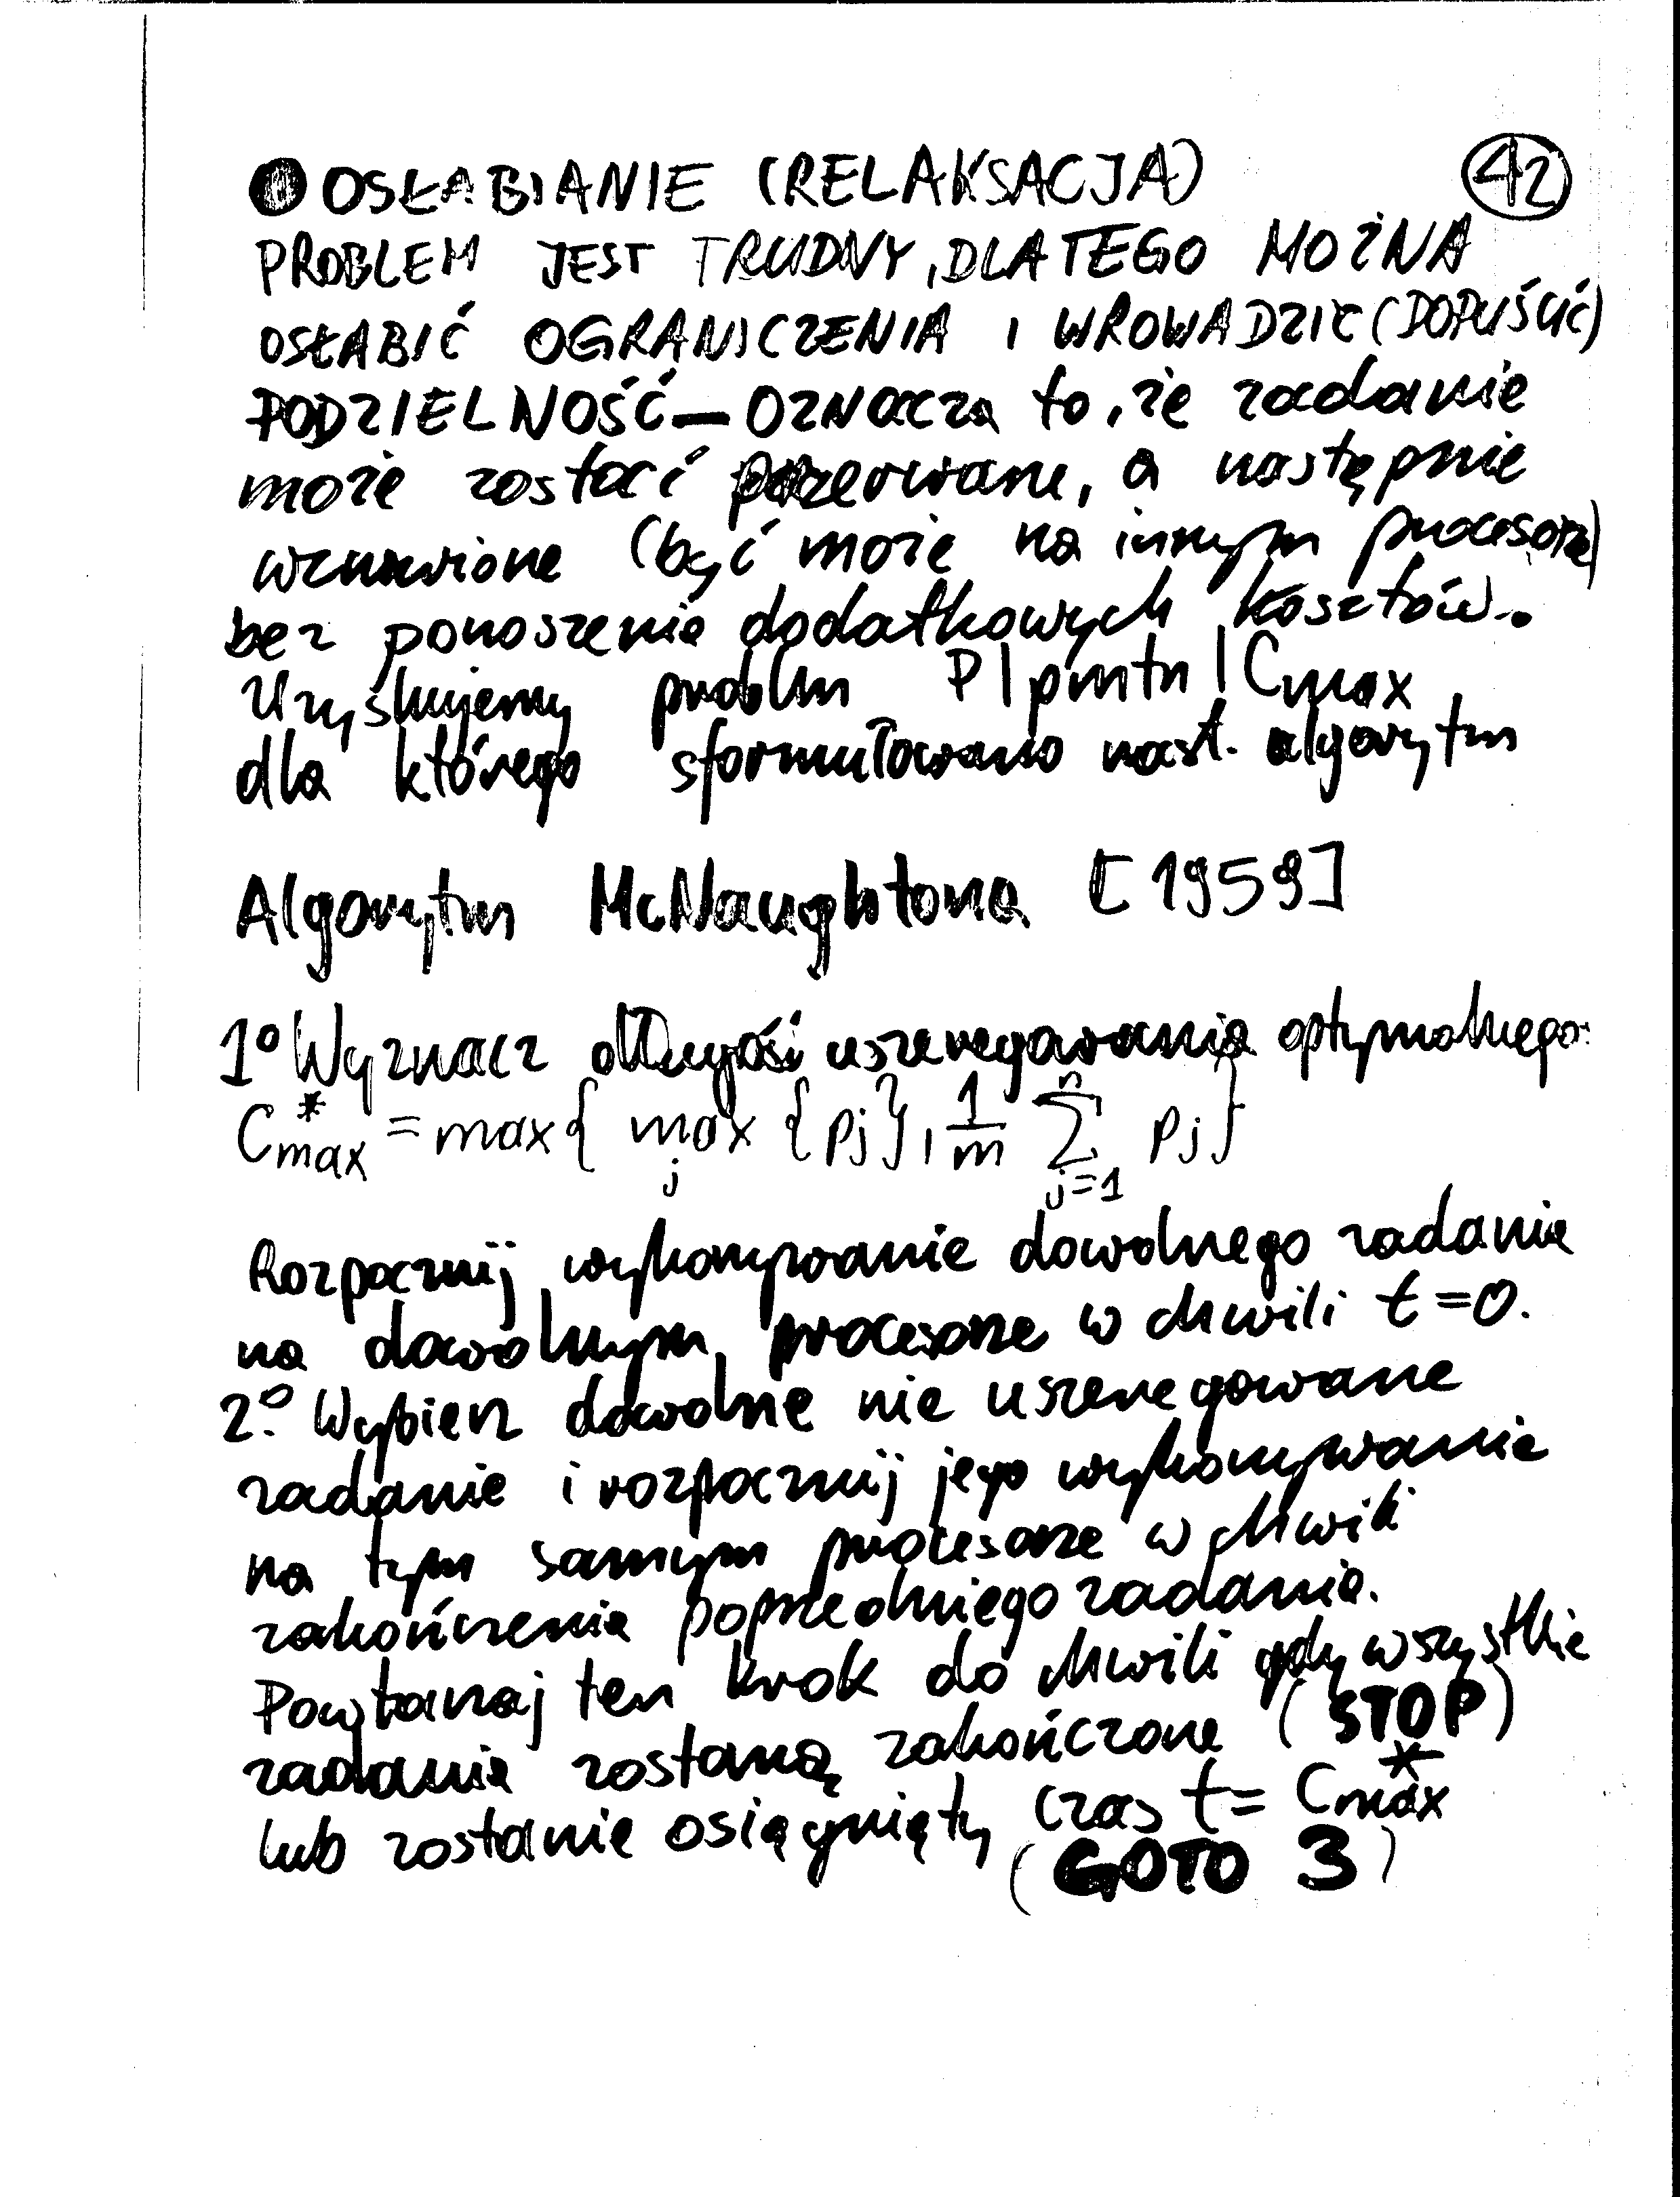 ● OSŁABIANIE (RELAKSACJA) 42
PROBLEM JEST TRUDNY, DLATEGO MOŻNA
OSŁABIĆ OGRANICZENIA I WROWADZIĆ (DOPUŚCIĆ)
PODZIELNOŚĆ — OZNACZA to, że zadanie
może zostać przerwane, a następnie
wznowione (być może na innym procesorze)
bez ponoszenia dodatkowych kosztów.
Uzyskujemy problem P|pmtn|Cmax
dla którego sformułowano nast. algorytm
Algorytm McNaughtona [1959]
1° Wyznacz długość uszeregowania optymalnego:
C*max = max{ max j {pj}, 1/m n∑j=1 pj}
Rozpocznij wykonywanie dowolnego zadania
na dowolnym procesorze w chwili t=0.
2.° Wybierz dowolne nie uszeregowane
zadanie i rozpocznij jego wykonywanie
na tym samym procesorze w chwili
zakończenia poprzedniego zadania.
Powtarzaj ten krok do chwili gdy wszystkie
zadania zostaną zakończone (STOP)
lub zostanie osiągnięty czas t = C*max
(GOTO 3)